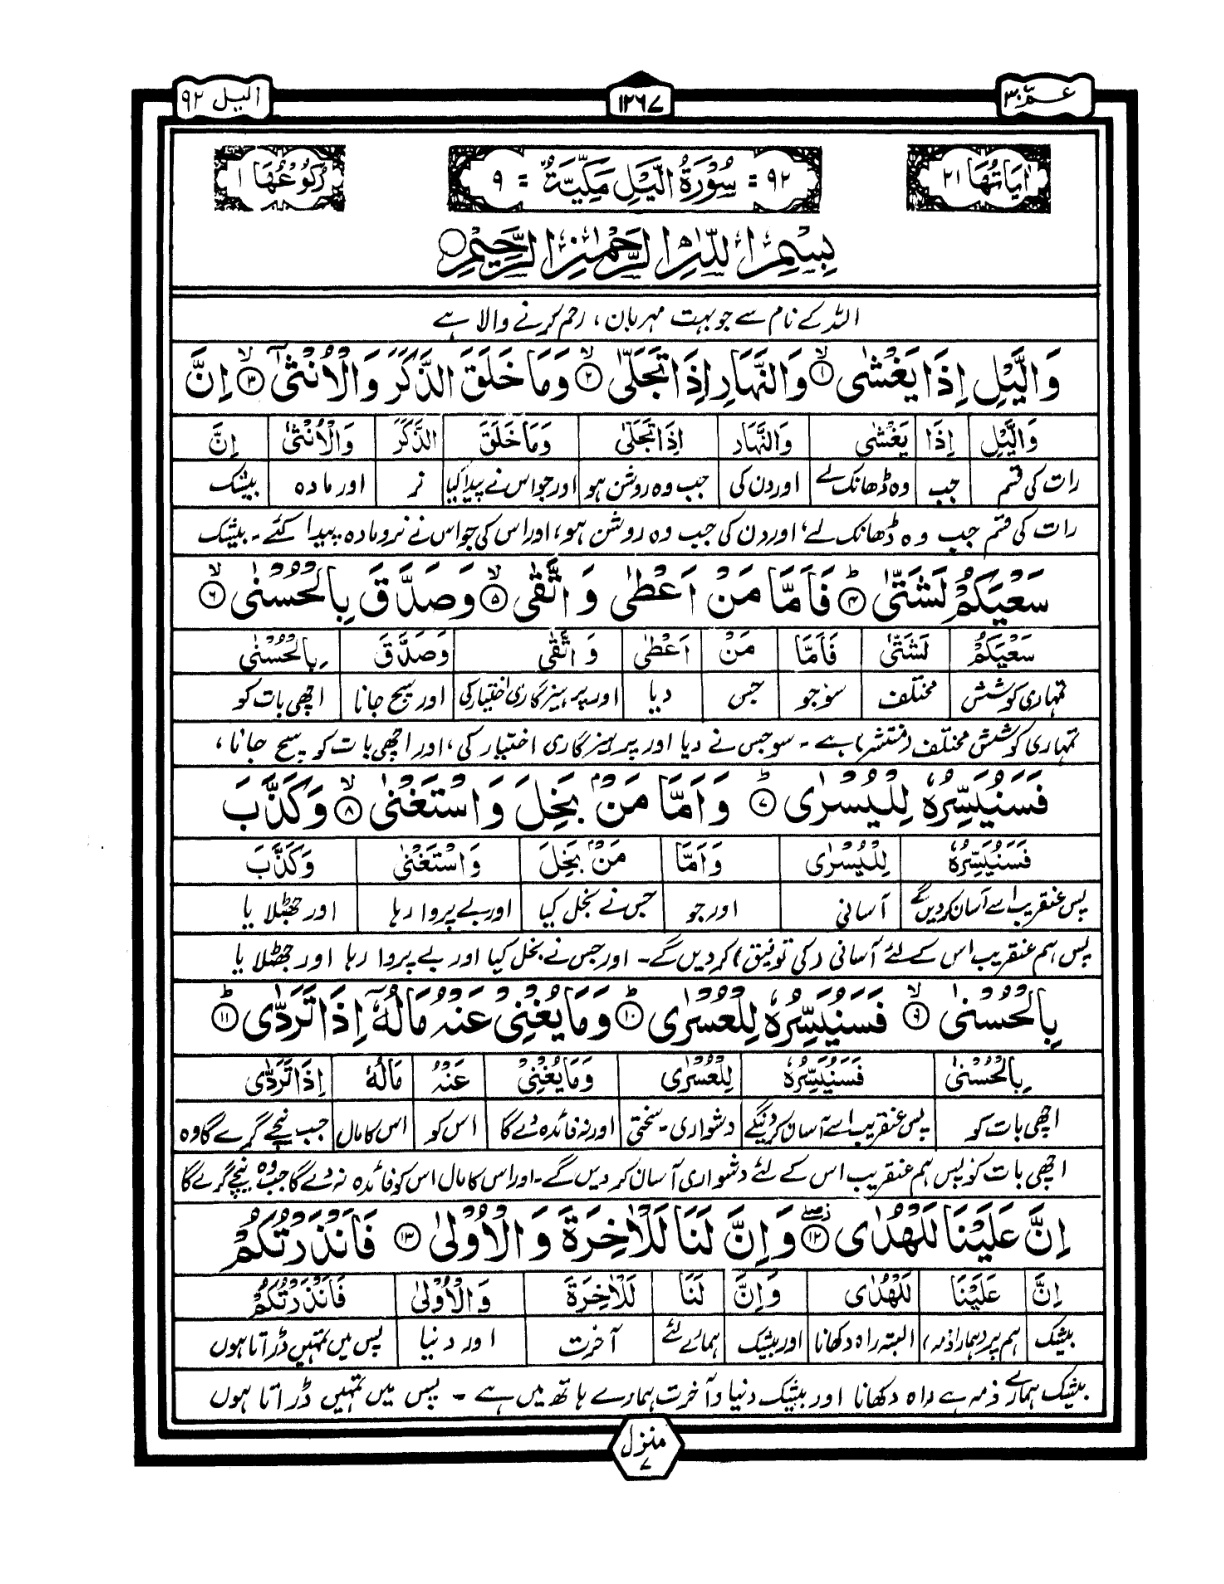 عمّ ۳۰
۱۲۶۷
الیل ۹۲
اٰیَاتُهَا ۲۱
۹۲ = سُوْرَةُ الَّیْلِ مَكِّیَّةٌ = ۹
رُكُوْعُهَا ۱
بِسْمِ اللّٰهِ الرَّحْمٰنِ الرَّحِیْمِ
اللہ کے نام سے جو بہت مہربان، رحم کرنے والا ہے
وَالَّیْلِ اِذَا یَغْشٰی ۙ﴿۱﴾ وَالنَّهَارِ اِذَا تَجَلّٰی ۙ﴿۲﴾ وَمَا خَلَقَ الذَّكَرَ وَالْاُنْثٰۤی ۙ﴿۳﴾ اِنَّ
وَالَّیْلِ اِذَا یَغْشٰی وَالنَّهَارِ اِذَا تَجَلّٰی وَمَا خَلَقَ الذَّكَرَ وَالْاُنْثٰی اِنَّ
رات کی قسم جب وہ ڈھانک لے اور دن کی جب وہ روشن ہو اور جو اس نے پیدا کیا نر اور مادہ بیشک
رات کی قسم جب وہ ڈھانک لے، اور دن کی جب وہ روشن ہو، اور اس کی جو اس نے نر و مادہ پیدا کئے۔ بیشک
سَعْیَكُمْ لَشَتّٰی ؕ﴿۴﴾ فَاَمَّا مَنْ اَعْطٰی وَ اتَّقٰی ۙ﴿۵﴾ وَصَدَّقَ بِالْحُسْنٰی ۙ﴿۶﴾
سَعْیَكُمْ لَشَتّٰی فَاَمَّا مَنْ اَعْطٰی وَ اتَّقٰی وَصَدَّقَ بِالْحُسْنٰی
تمہاری کوشش مختلف سو جو جس دیا اور پرہیزگاری اختیار کی اور سچ جانا اچھی بات کو
تمہاری کوشش مختلف (منتشر) ہے۔ سو جس نے دیا اور پرہیزگاری اختیار کی، اور اچھی بات کو سچ جانا،
فَسَنُیَسِّرُهٗ لِلْیُسْرٰی ؕ﴿۷﴾ وَ اَمَّا مَنْۢ بَخِلَ وَ اسْتَغْنٰی ۙ﴿۸﴾ وَ كَذَّبَ
فَسَنُیَسِّرُهٗ لِلْیُسْرٰی وَ اَمَّا مَنْۢ بَخِلَ وَ اسْتَغْنٰی وَ كَذَّبَ
پس عنقریب اسے آسان کردیں گے آسانی اور جو جس نے بخل کیا اور بے پروا رہا اور جھٹلایا
پس ہم عنقریب اس کے لئے آسانی (کی توفیق) کردیں گے۔ اور جس نے بخل کیا اور بے پروا رہا اور جھٹلایا
بِالْحُسْنٰی ۙ﴿۹﴾ فَسَنُیَسِّرُهٗ لِلْعُسْرٰی ؕ﴿۱۰﴾ وَمَا یُغْنِیْ عَنْهُ مَالُهٗۤ اِذَا تَرَدّٰی ؕ﴿۱۱﴾
بِالْحُسْنٰی فَسَنُیَسِّرُهٗ لِلْعُسْرٰی وَمَا یُغْنِیْ عَنْهُ مَالُهٗ اِذَا تَرَدّٰی
اچھی بات کو پس عنقریب اسے آسان کردینگے دشواری۔ سختی اور نہ فائدہ دے گا اس کو اس کا مال جب نیچے گرے گا وہ
اچھی بات کو پس ہم عنقریب اس کے لئے دشواری آسان کردیں گے۔ اور اس کا مال اس کو فائدہ نہ دے گا جب وہ نیچے گرے گا
اِنَّ عَلَیْنَا لَلْهُدٰی ﴿۱۲﴾ وَ اِنَّ لَنَا لَلْاٰخِرَةَ وَ الْاُوْلٰی ﴿۱۳﴾ فَاَنْذَرْتُكُمْ
اِنَّ عَلَیْنَا لَلْهُدٰی وَ اِنَّ لَنَا لَلْاٰخِرَةَ وَ الْاُوْلٰی فَاَنْذَرْتُكُمْ
بیشک ہم پر (ہمارا ذمہ) البتہ راہ دکھانا اور بیشک ہمارے لئے آخرت اور دنیا پس میں تمہیں ڈراتا ہوں
بیشک ہمارے ذمہ ہے راہ دکھانا اور بیشک دنیا و آخرت ہمارے ہاتھ میں ہے۔ پس میں تمہیں ڈراتا ہوں
منزل ۷